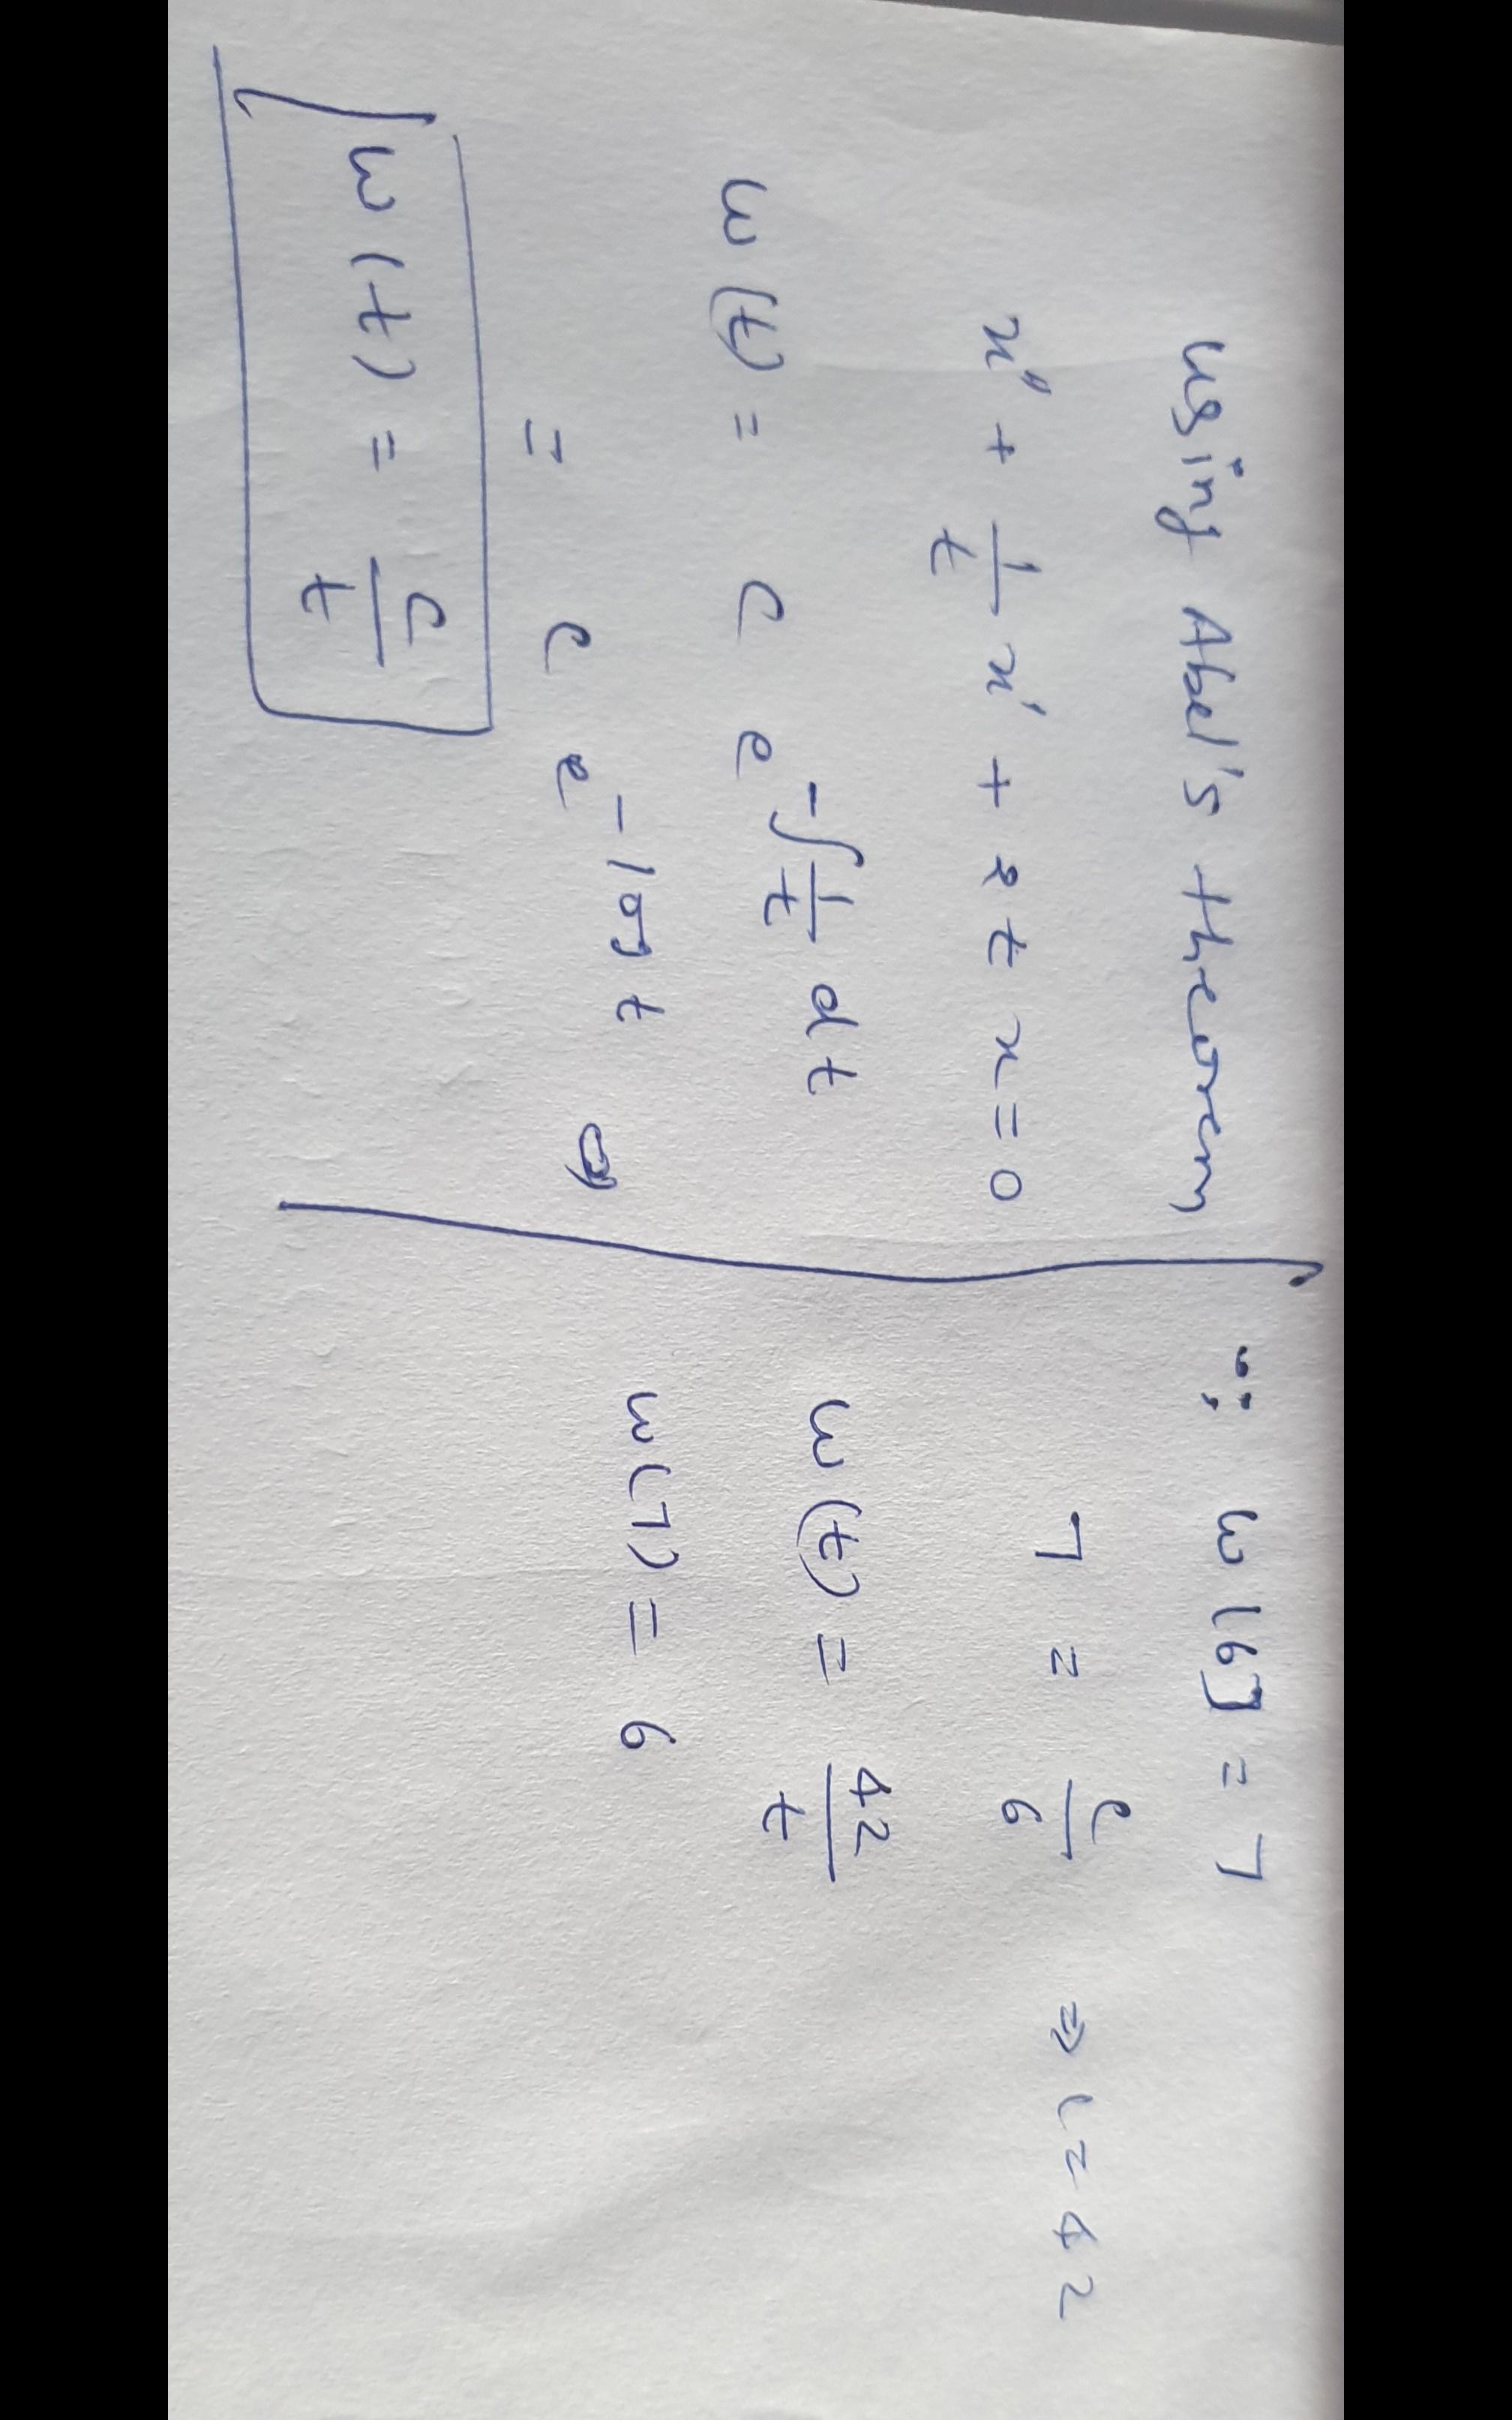 using Abel's theorem
x'' + 1/t x' + 2 t x = 0
W(t) = C e^-∫1/t dt
= C e^-log t
W(t) = C/t
∵ W(6) = 7
7 = C/6 ⇒ C = 42
W(t) = 42/t
W(7) = 6